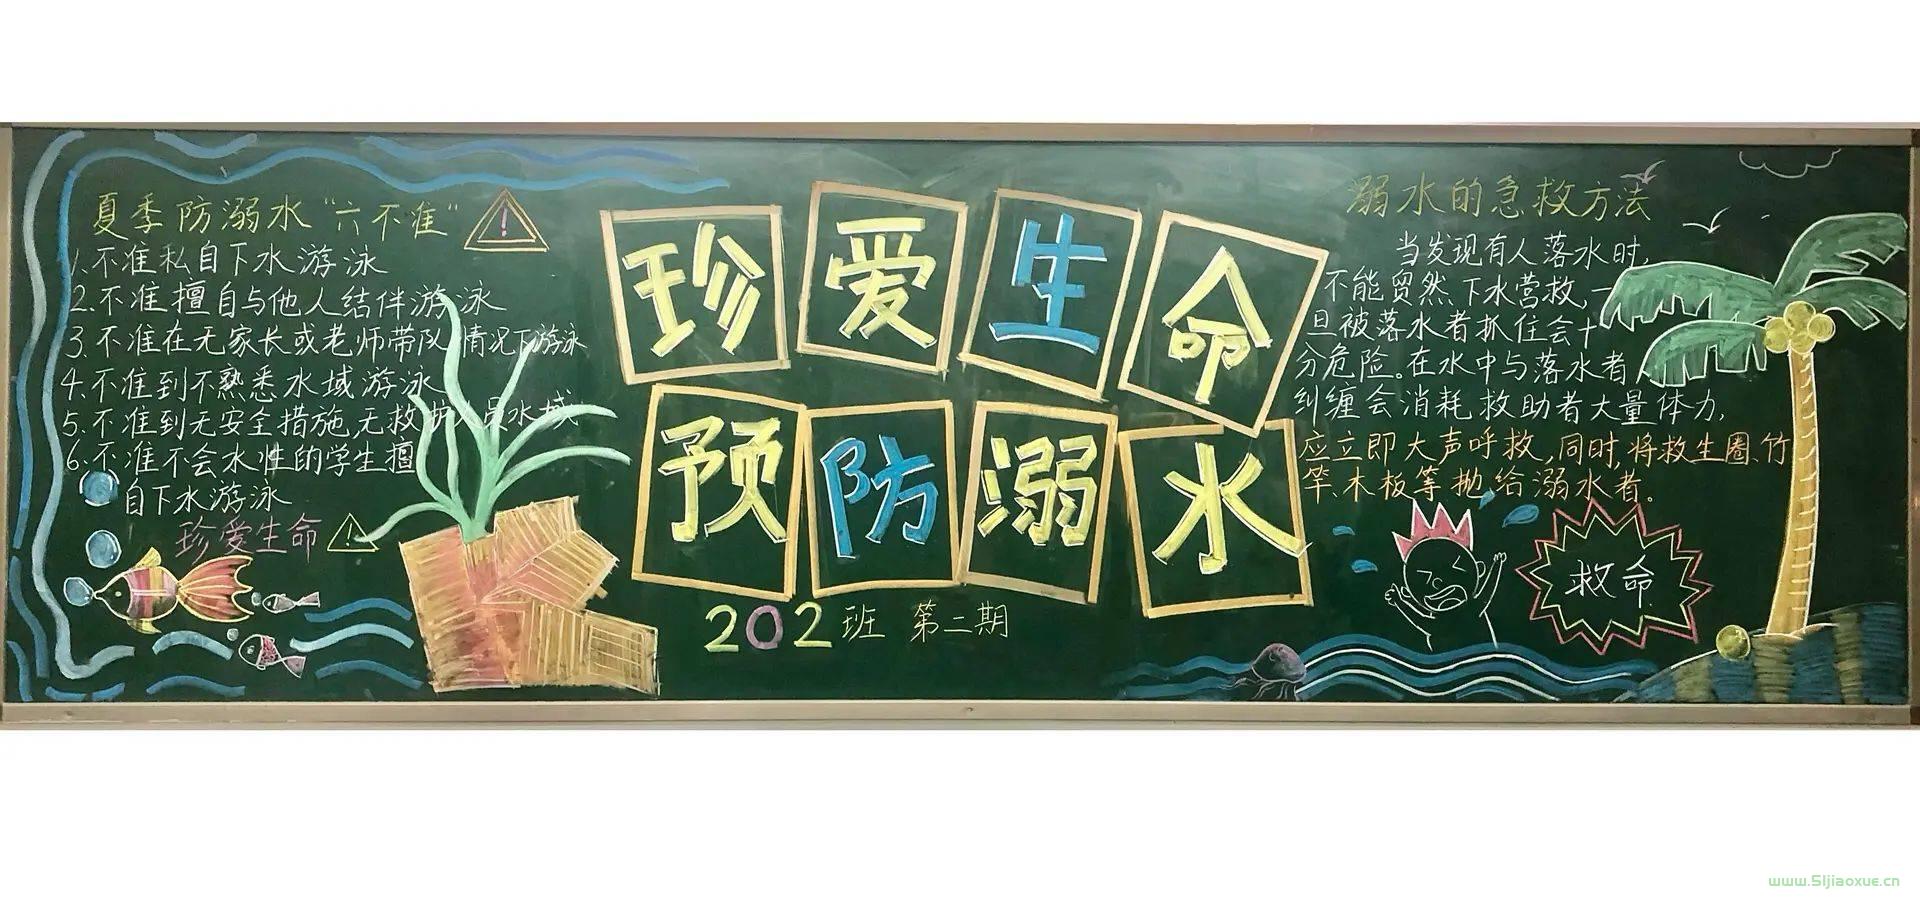 夏季防溺水“六不准”
1.不准私自下水游泳
2.不准擅自与他人结伴游泳
3.不准在无家长或老师带队情况下游泳
4.不准到不熟悉水域游泳
5.不准到无安全措施,无救护人员水域
6.不准不会水性的学生擅
自下水游泳
珍爱生命
珍爱生命
预防溺水
202班 第二期
溺水的急救方法
当发现有人落水时,
不能贸然下水营救,一
旦被落水者抓住会十
分危险。在水中与落水者
纠缠会消耗救助者大量体力,
应立即大声呼救,同时,将救生圈、竹
竿、木板等抛给溺水者。
救命
www.51jiaoxue.cn